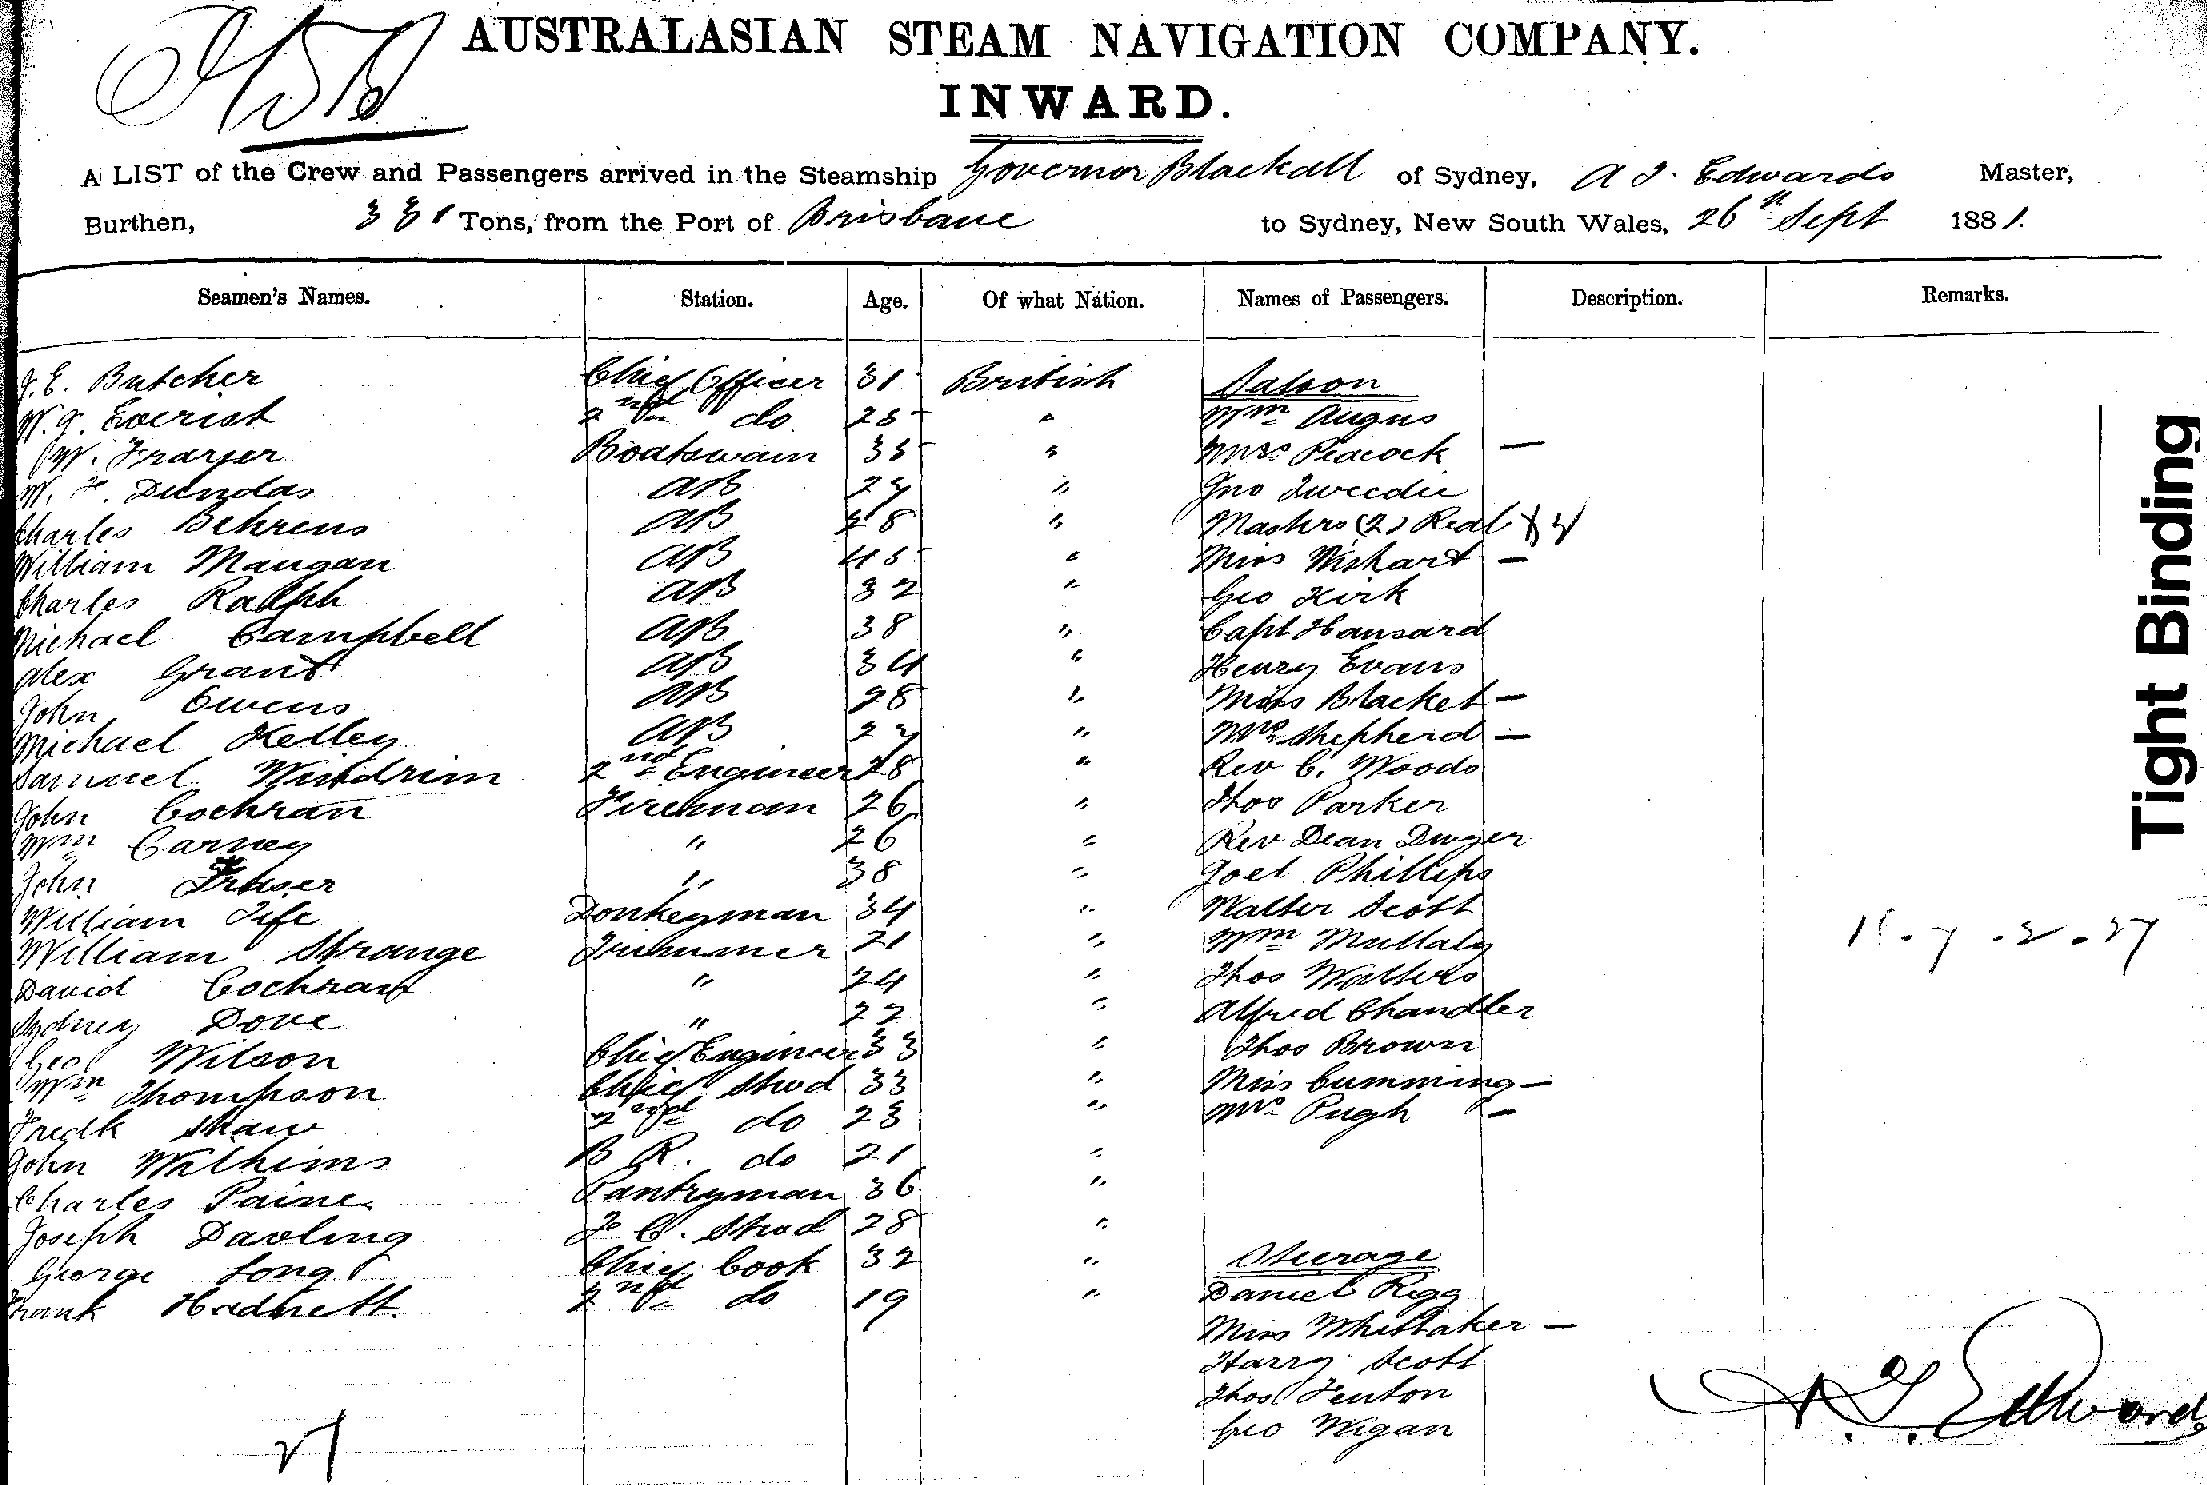 AUSTRALASIAN STEAM NAVIGATION COMPANY.
INWARD.
A LIST of the Crew and Passengers arrived in the Steamship Governor Blackall of Sydney, A J. Edwards Master,
Burthen, 331 Tons, from the Port of Brisbane to Sydney, New South Wales, 26th Sept 1881.
Seamen's Names. Station. Age. Of what Nation. Names of Passengers. Description. Remarks.
J. E. Butcher Chief Officer 31 British Saloon
W. G. Everist 2nd do 25 " Wm Angus
W. Frazer Boatswain 35 " Mrs Peacock —
W. F. Dundas AB 27 " Jno Tweedie
Charles Behrens AB 28 " Mastrs (2) Real
William Mangan AB 45 " Miss Wishart —
Charles Ralph AB 32 " Geo Kirk
Michael Campbell AB 38 " Capt Hansard
Alex Grant AB 34 " Henry Evans
John Owens AB 28 " Miss Blacket —
Michael Kelley AB 27 " Mrs Shepherd —
Samuel Windrim 2nd Engineer 28 " Rev C. Woods
John Cochran Fireman 26 " Thos Parker
Wm Carney " 26 " Rev Dean Dwyer
John Fraser " 38 " Joel Phillips
William Fife Donkeyman 34 " Walter Scott
William Strange Trimmer 21 " Wm Mullaly
David Cochran " 24 " Thos Walters
Sydney Dove " 22 " Alfred Chandler
Geo Wilson Chief Engineer 33 " Thos Brown
Wm Thompson Chief Stwd 33 " Miss Cumming —
Fredk Shaw 2nd do 23 " Mrs Pugh —
John Watkims B R. do 21 "
Charles Paine Pantryman 36 "
Joseph Dawling F C. Stwd 28 "
George Long Chief Cook 32 " Steerage
Frank Hadnett 2nd do 19 " Daniel Rigg
Miss Whittaker —
Harry Scott
Thos Fenton
Geo Wigan
27
A. J. Edwards
Tight Binding